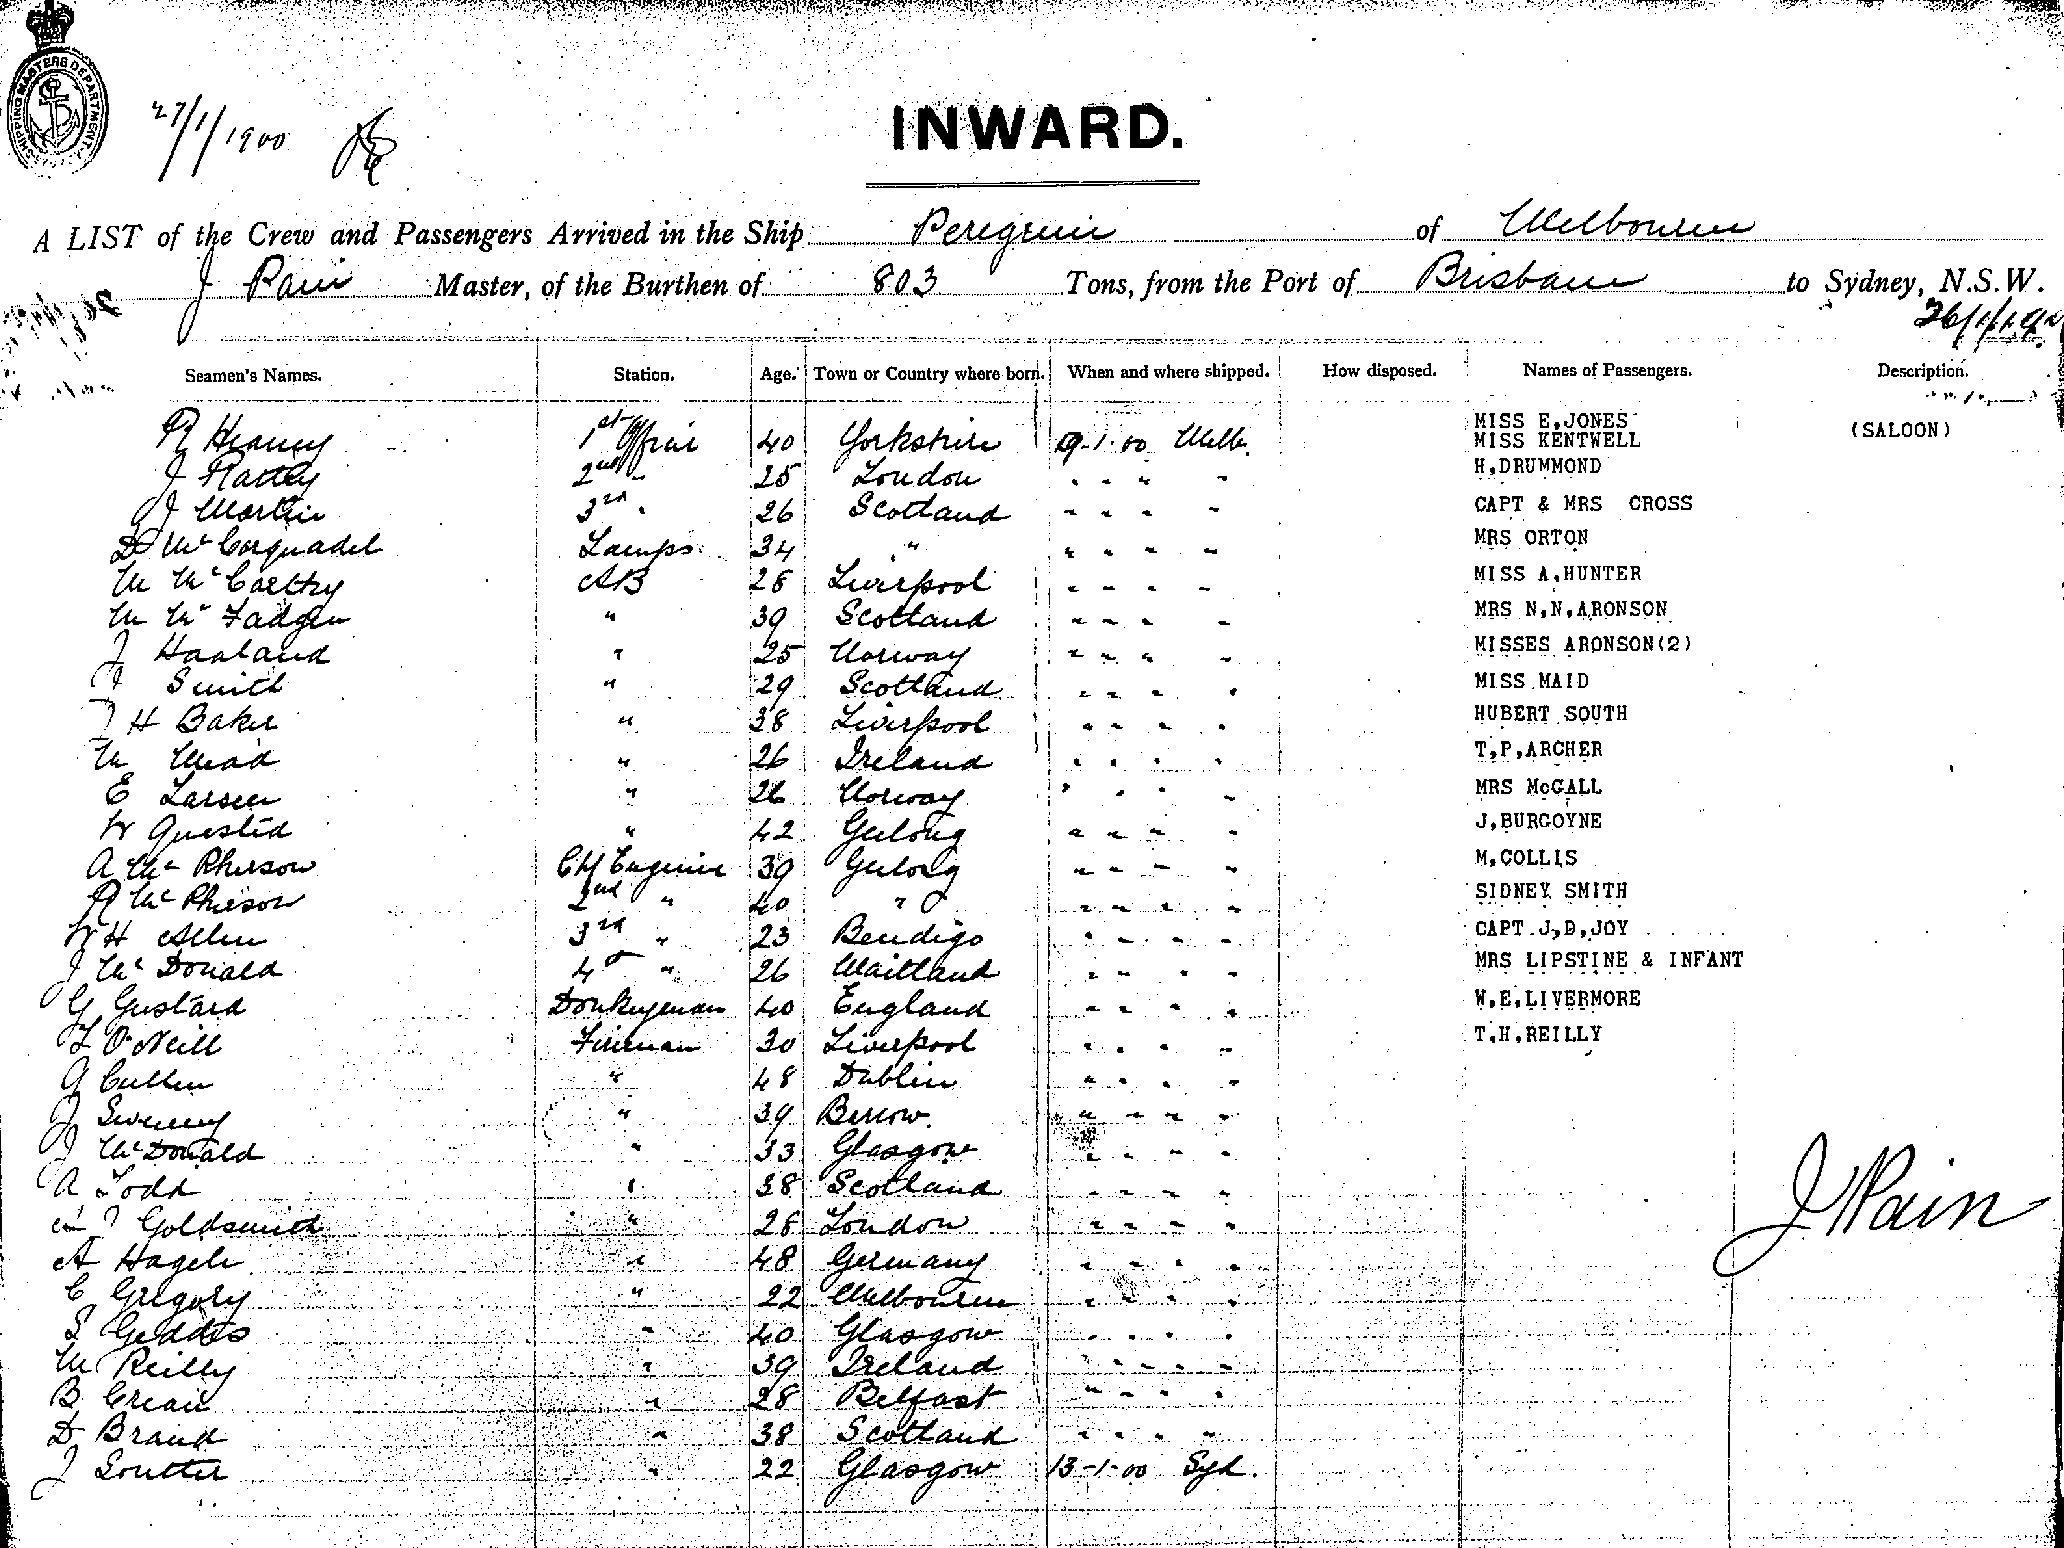 SHIPPING MASTERS DEPARTMENT
27/1/1900
INWARD.
A LIST of the Crew and Passengers Arrived in the Ship Peregrine of Melbourne
J Pain Master, of the Burthen of 803 Tons, from the Port of Brisbane to Sydney, N.S.W.
26/1/1900
Seamen's Names. Station. Age. Town or Country where born. When and where shipped. How disposed. Names of Passengers. Description.
MISS E.JONES
R Heaney 1st Officer 40 Yorkshire 9-1-00 Melb. MISS KENTWELL (SALOON)
J Rattey 2nd " 25 London " " " " H.DRUMMOND
J Martin 3rd " 26 Scotland " " " " CAPT & MRS CROSS
D Mc Corquadel Lamps 34 " " " " " MRS ORTON
M Mc Carthy AB 28 Liverpool " " " " MISS A.HUNTER
M Mc Fadgen " 39 Scotland " " " " MRS N.N.ARONSON
J Haaland " 25 Norway " " " " MISSES ARONSON(2)
J Smith " 29 Scotland " " " " MISS MAID
J H Baker " 38 Liverpool " " " " HUBERT SOUTH
M Mead " 26 Ireland " " " " T.P.ARCHER
E Larsen " 26 Norway " " " " MRS McCALL
W Quested " 42 Geelong " " " " J.BURGOYNE
A Mc Pherson Ch Engineer 39 Geelong " " " " M.COLLIS
R Mc Pherson 2nd " 40 " " " " " SIDNEY SMITH
W H Allen 3rd " 23 Bendigo " " " " CAPT J.D.JOY
J Mc Donald 4th " 26 Maitland " " " " MRS LIPSTINE & INFANT
G Gustard Donkeyman 40 England " " " " W.E.LIVERMORE
F O'Neill Fireman 30 Liverpool " " " " T.H.REILLY
G Cullen " 48 Dublin " " " "
J Sweeny " 39 " " " "
J McDonald " 33 Glasgow " " " "
A Todd " 38 Scotland " " " "
J Goldsmith " 28 London " " " "
A Hagele " 48 Germany " " " "
C Gregory " 22 Melbourne " " " "
S Geddes " 40 Glasgow " " " "
M Reilly " 39 Ireland " " " "
B Crean " 28 Belfast " " " "
D Brand " 38 Scotland " " " "
J Soutter " 22 Glasgow 13-1-00 Syd.
J Pain